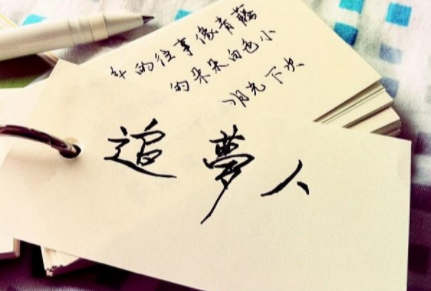 年的往事像青藤
的朵朵白色小
月光下
追夢人